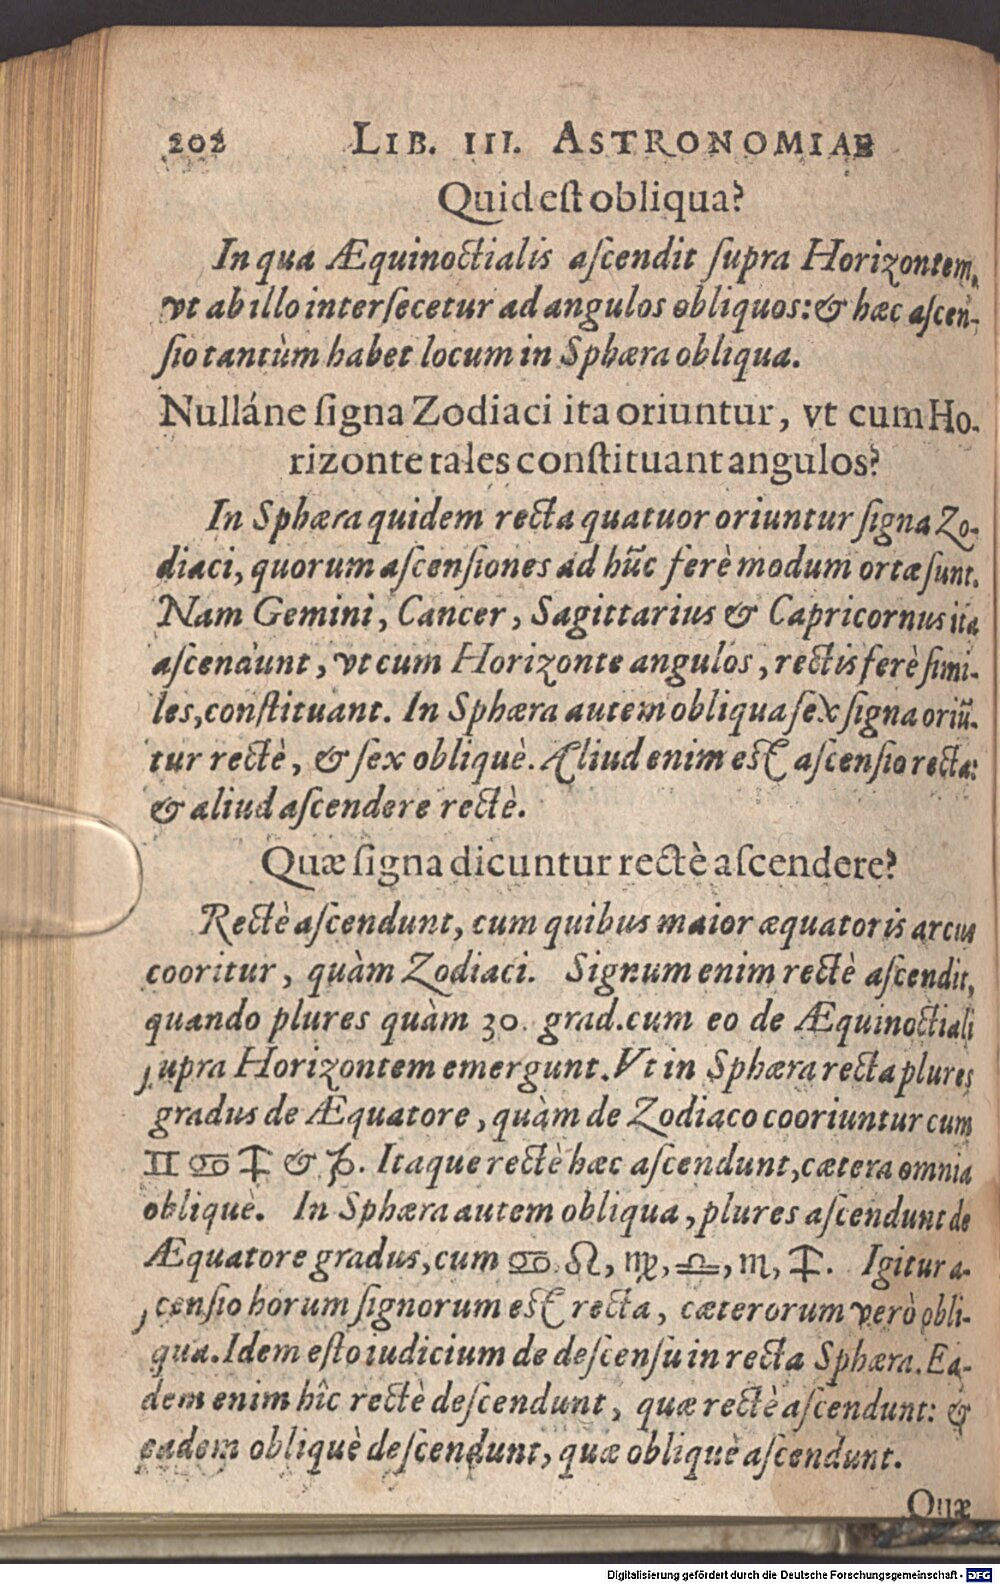 202 LIB. III. ASTRONOMIAE
Quid eſt obliqua?
In qua Æquinoctialis aſcendit ſupra Horizontem,
vt ab illo interſecetur ad angulos obliquos: & hæc aſcen-
ſio tantùm habet locum in Sphæra obliqua.
Nulláne ſigna Zodiaci ita oriuntur, vt cum Ho-
rizonte tales conſtituant angulos?
In Sphæra quidem recta quatuor oriuntur ſigna Zo-
diaci, quorum aſcenſiones ad hũc ferè modum ortæ ſunt.
Nam Gemini, Cancer, Sagittarius & Capricornus ita
aſcendunt, vt cum Horizonte angulos, rectis ferè ſimi-
les, conſtituant. In Sphæra autem obliqua ſex ſigna oriũ-
tur rectè, & ſex obliquè. Aliud enim eſt aſcenſio recta:
& aliud aſcendere rectè.
Quæ ſigna dicuntur rectè aſcendere?
Rectè aſcendunt, cum quibus maior æquatoris arcus
cooritur, quàm Zodiaci. Signum enim rectè aſcendit,
quando plures quàm 30. grad. cum eo de Æquinoctiali
ſupra Horizontem emergunt. Vt in Sphæra recta plures
gradus de Æquatore, quàm de Zodiaco cooriuntur cum
♊ ♋ ♐ & ♑. Itaque rectè hæc aſcendunt, cætera omnia
obliquè. In Sphæra autem obliqua, plures aſcendunt de
Æquatore gradus, cum ♋. ♌, ♍, ♎, ♏, ♐. Igitur a-
ſcenſio horum ſignorum eſt recta, cæterorum verò obli-
qua. Idem eſto iudicium de deſcenſu in recta Sphæra. Ea-
dem enim hîc rectè deſcendunt, quæ rectè aſcendunt: &
eadem obliquè deſcendunt, quæ obliquè aſcendunt.
Quæ
Digitalisierung gefördert durch die Deutsche Forschungsgemeinschaft - DFG